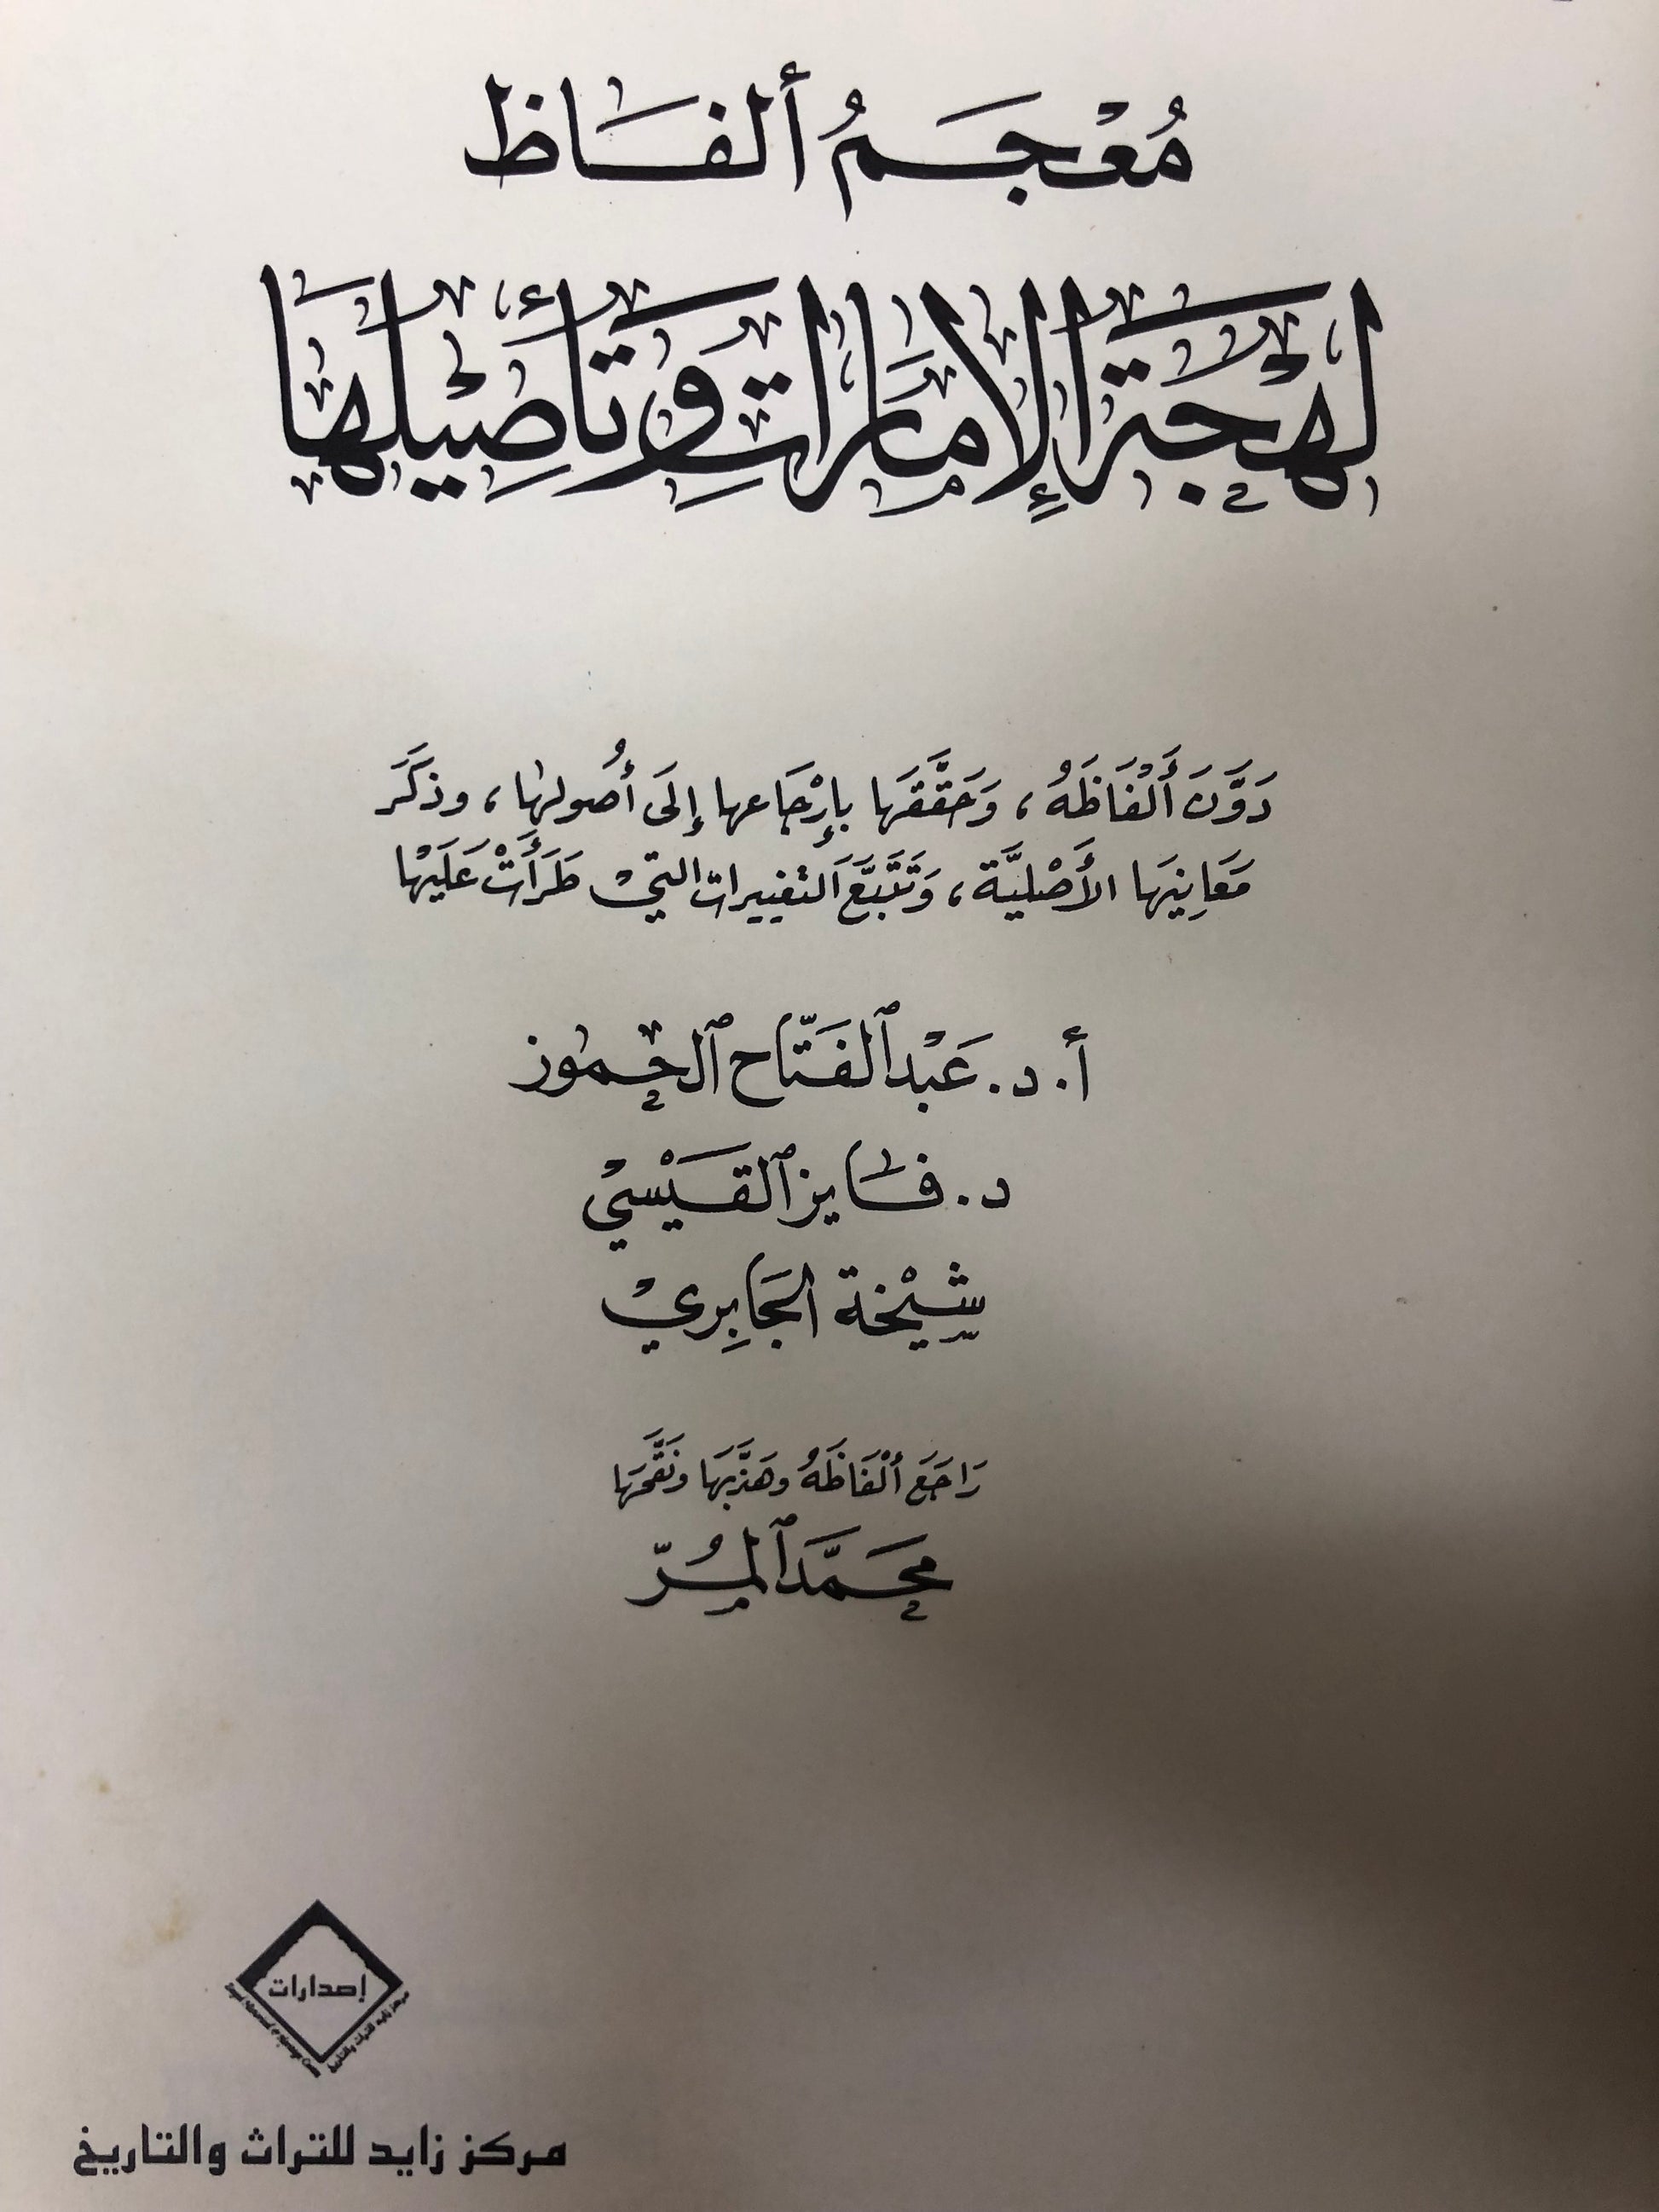 مُعْجَمُ ألفَاظ
لَهْجَةِ الإِمَارَاتِ وَتَأْصِيْلِهَا
دَوَّنَ أَلْفَاظَهُ، وَحَقَّقَهَا بإِرْجَاعها إِلَى أُصُولِها، وذكَرَ
مَعَانِيَها الأَصْلِيَّة، وَتَتَبَّعَ التغييرات التيْ طَرَأَتْ عَلَيْها
أ. د. عَبْد ٱلفَتَّاح ٱلحمُوز
د. فَايز ٱلقَيْسيْ
شِيْخة الجَابِريْ
رَاجَعَ ألْفَاظَهُ وهَذَّبَها ونَقَّحَها
محَمَّد ٱلمُرّ
إصدارات
مركز زايد للتراث والتاريخ
مركز زايد للتراث والتاريخ